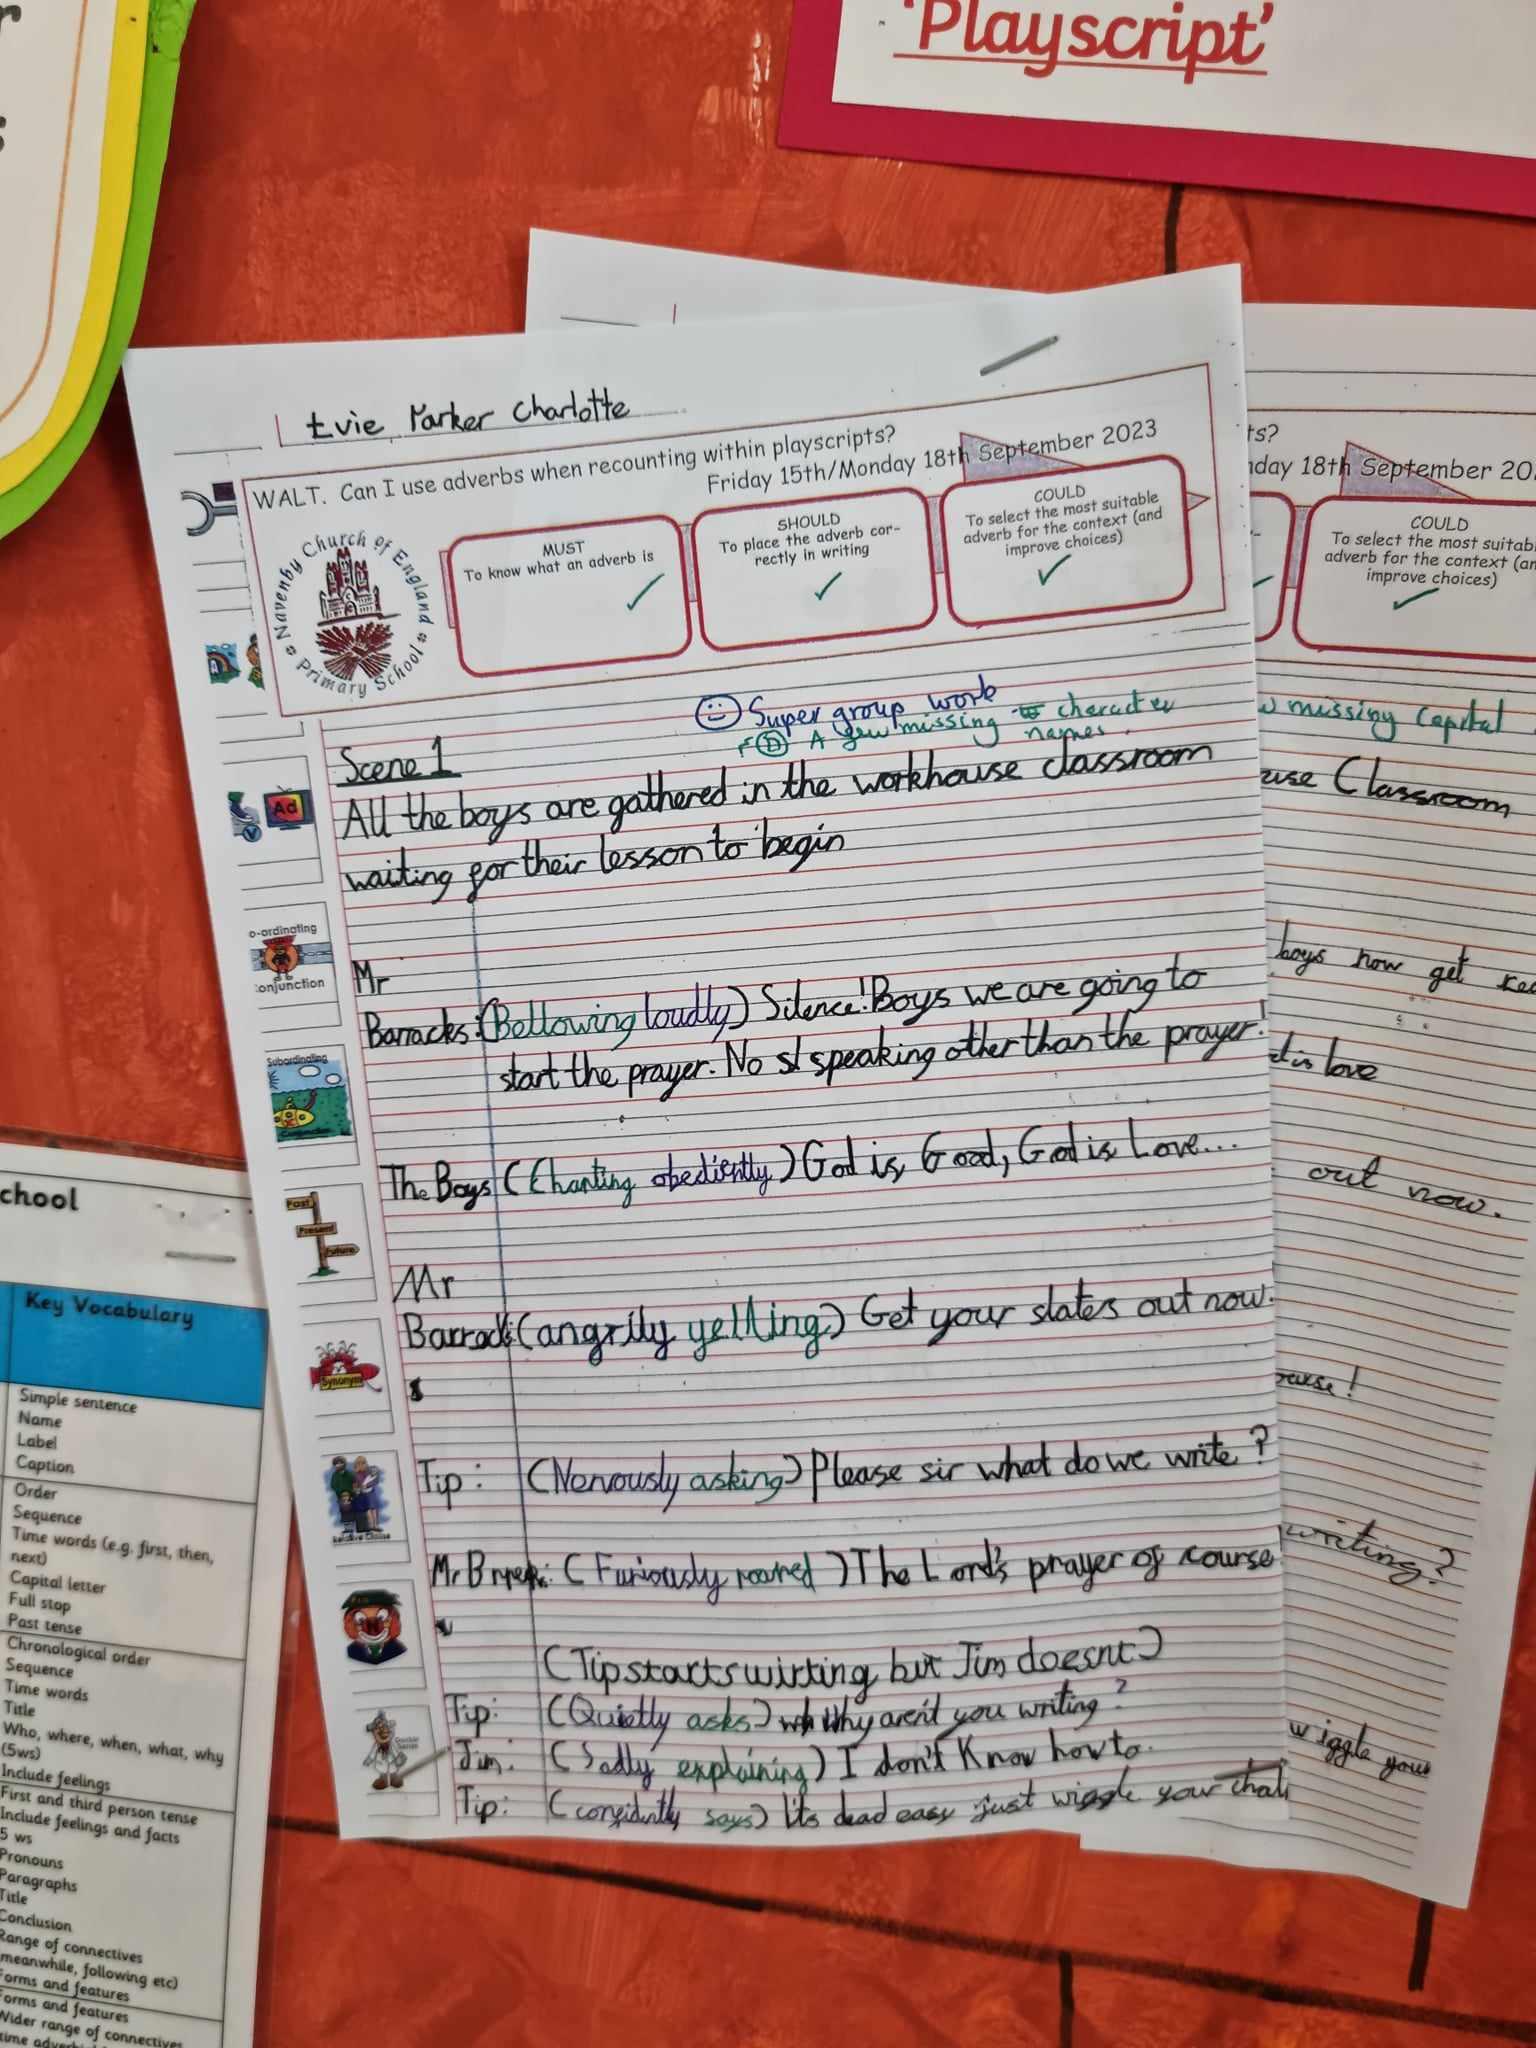 'Playscript'
Evie Parker Charlotte
WALT. Can I use adverbs when recounting within playscripts?
Friday 15th/Monday 18th September 2023
Navenby Church of England
Primary School
MUST
To know what an adverb is
SHOULD
To place the adverb cor-
rectly in writing
COULD
To select the most suitable
adverb for the context (and
improve choices)
Super group work
A few missing character
names.
Scene 1
All the boys are gathered in the workhouse classroom
waiting for their lesson to begin
Mr
Barracks: (Bellowing loudly) Silence! Boys we are going to
start the prayer. No st speaking other than the prayer!
The Boys (Chanting obediently) God is Good, God is Love...
Mr
Barrack: (angrily yelling) Get your slates out now.
s
Tip: (Nervously asking) Please sir what do we write?
Mr (Furiously roared) The Lord's prayer of course
(Tip starts wirting but Jim doesnt)
Tip: (Quietly asks) why aren't you writing?
Jim: (Sadly explaining) I don't know how to.
Tip: (confidently says) Its dead easy just wiggle your chalk
Ad
V
o-ordinating
onjunction
Subordinating
Conjunction
Past
Present
Future
Synonym
Relative Clause
N
ts?
nday 18th September 20
COULD
To select the most suitabl
adverb for the context (an
improve choices)
missing capital
use Classroom
boys now get rea
d is love
out now.
ourse!
writing?
wiggle your
chool
Key Vocabulary
Simple sentence
Name
Label
Caption
Order
Sequence
Time words (e.g. first, then,
next)
Capital letter
Full stop
Past tense
Chronological order
Sequence
Time words
Title
Who, where, when, what, why
(5ws)
Include feelings
First and third person tense
Include feelings and facts
5 ws
Pronouns
Paragraphs
Title
Conclusion
Range of connectives
meanwhile, following etc)
Forms and features
Forms and features
Wider range of connectives